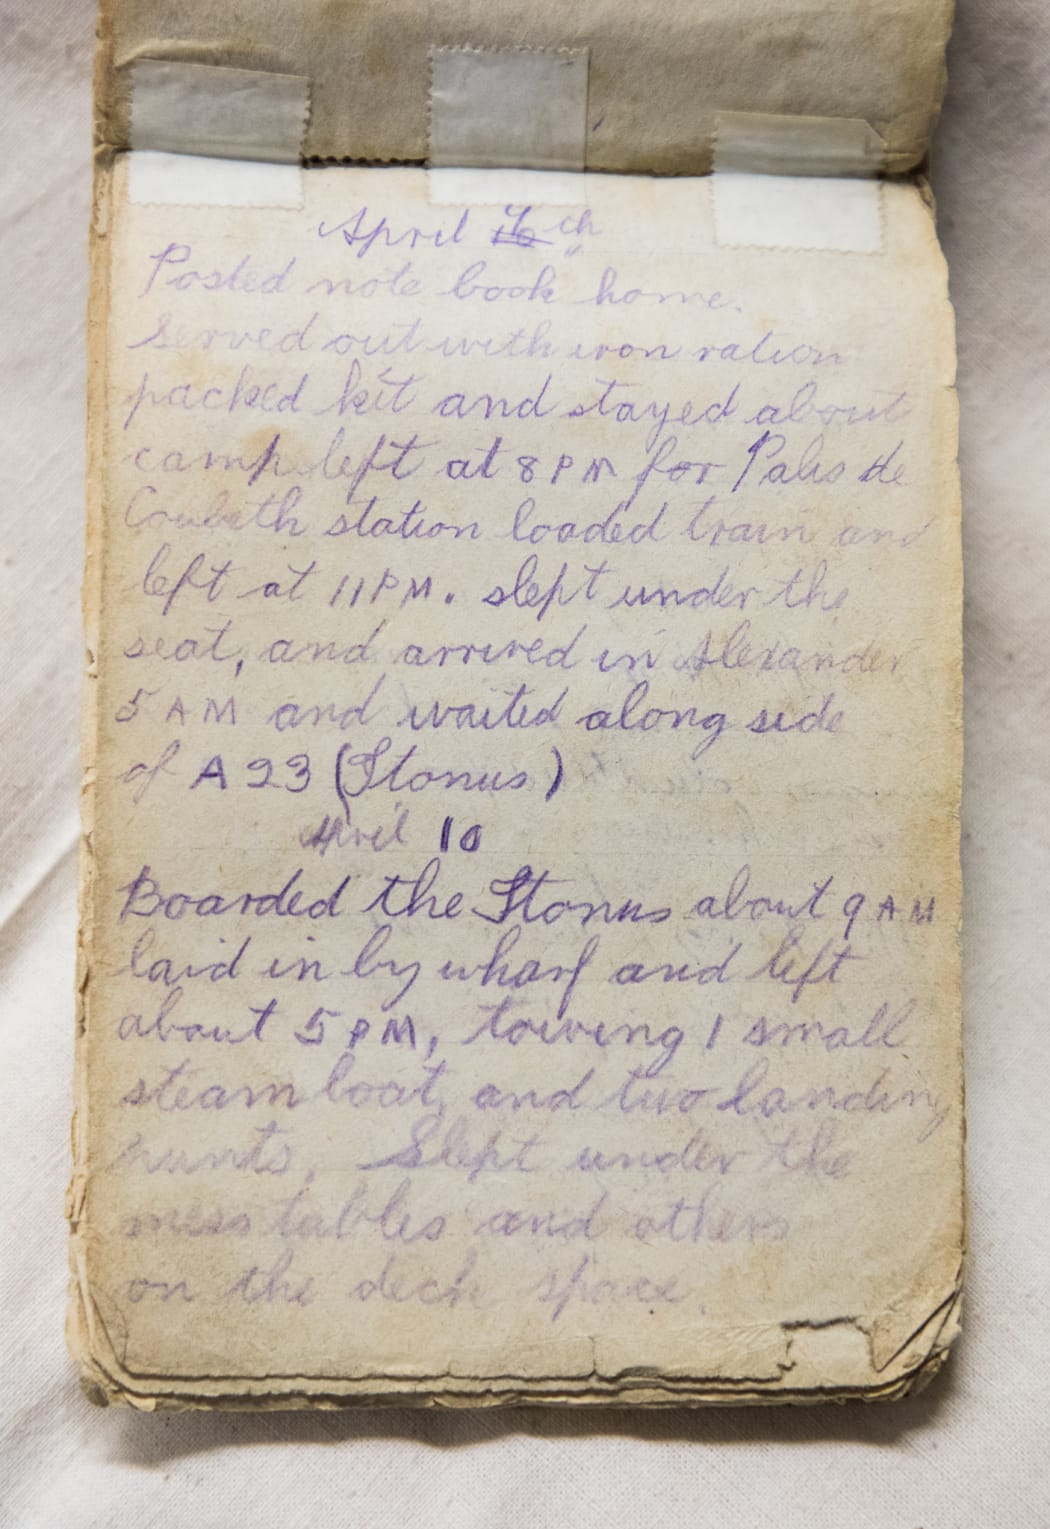 April th
Posted note book home.
Served out with iron ration
packed kit and stayed about
camp left at 8 PM for Palis de
Coubeth station loaded train and
left at 11 PM. slept under the
seat, and arrived in Alexander
5 AM and waited along side
of A 23 (Stonus)
April 10
Boarded the Stonus about 9 AM
laid in by wharf and left
about 5 PM, towing 1 small
steam boat, and two landing
punts. Slept under the
mess tables and others
on the deck space.